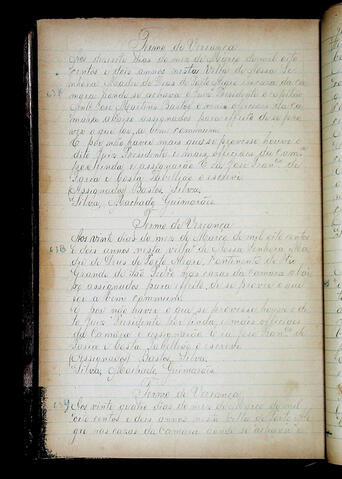 Termo de Vereança
Aos dezoito dias do mez de Março de mil oito
centos e dois annos nesta Villa de Nossa Se
nhora Madre de Deus de Porto Alegre em casa da ca
mara onde se achava o Juiz Presidente o Capitão
José Martins Bastos e mais officiaes da ca
mara abaixo assignados para effeito de se pro
ver o que fos a bem commum
E por não haver mais que se provesse houve o
dito Juiz Presidente e mais officiaes da Camª
por finda e assignarão E eu José Franco de
Faria e Costa tabellião o escrevi
(Assignados) Bastos, Silva,
Silva, Machado, Guimarães
Termo de Vereança
Aos vinte dias do mez de Março de mil oito centos
e dois annos nesta villa de Nossa Senhora Ma
dre de Deus de Porto Alegre, Continente do Rio
Grande de São Pedro nas casas da camara abai
xo assignados para effeito de se prover o que
ser a bem commum
E por não haver o que se provesse houve o di
to Juiz Presidente por finda e mais officiaes
da Camara e assignarão E eu José Franco de
Faria e Costa, tabellião o escrevi
(Assignados) Bastos, Silva,
Silva, Machado Guimarães
Termo de Vereança
Aos vinte quatro dias do mez de Março de mil
oito centos e dois annos nesta Villa de Porto Ale
gre nas casas da Camara donde se achava o